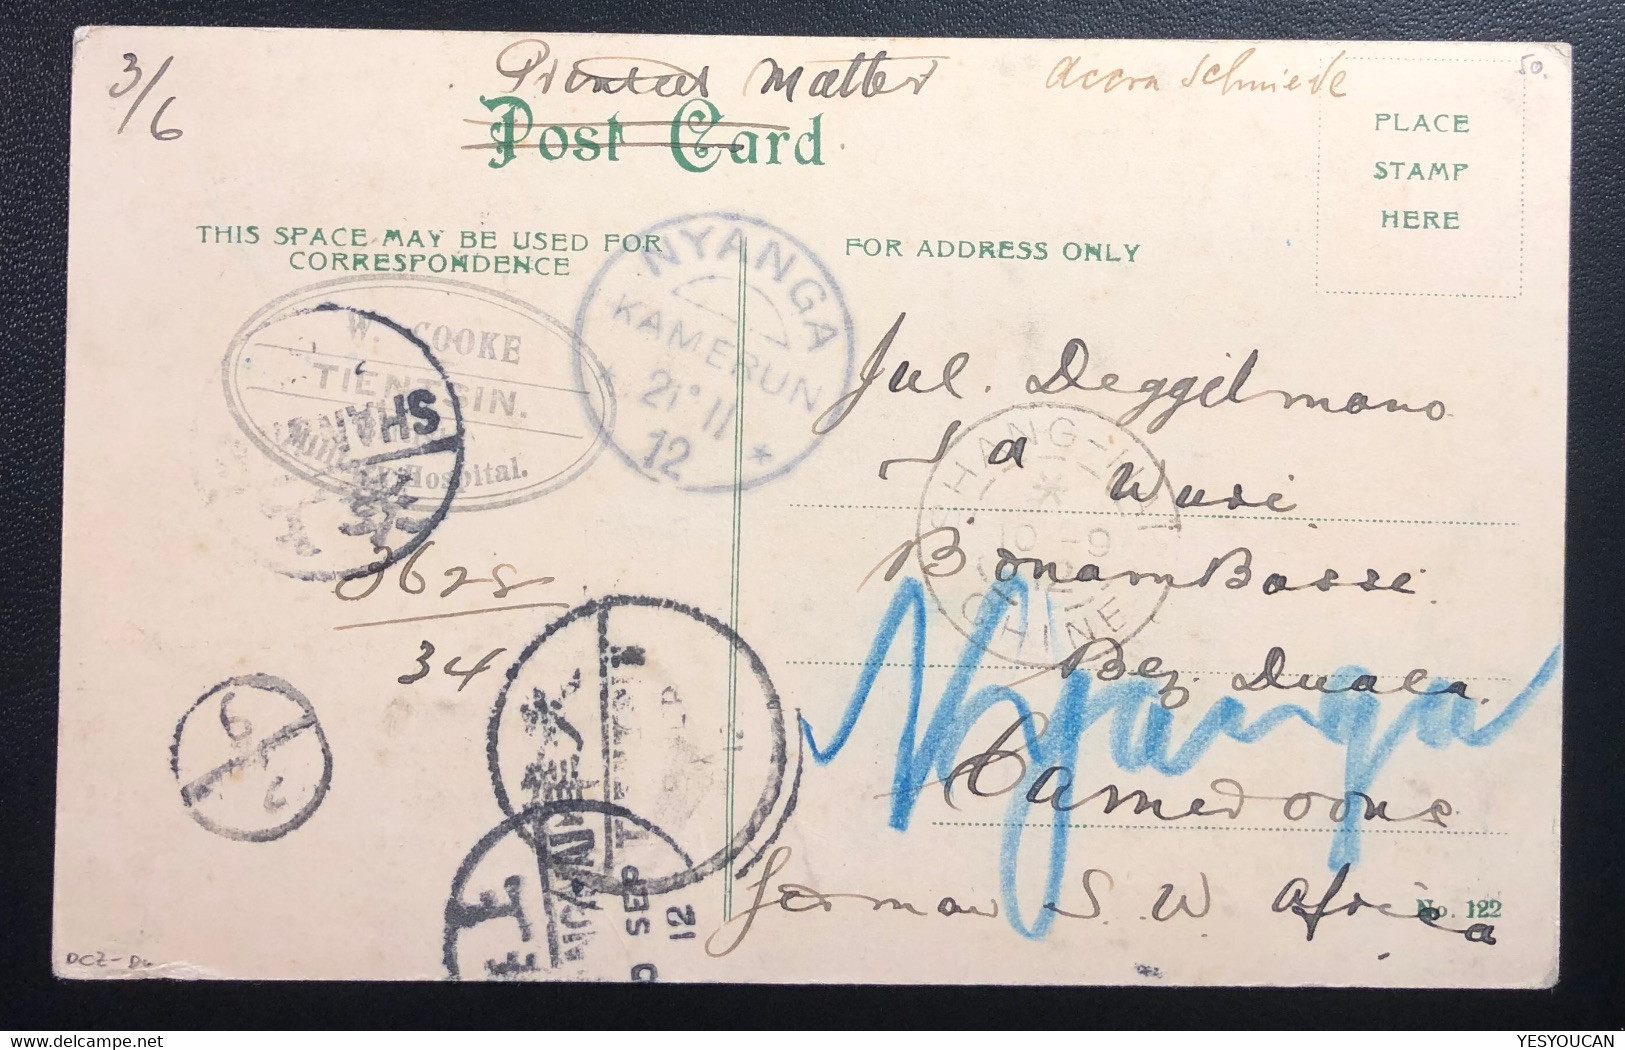 3/6
Printed Matter
Accra Schmiede
50.
Post Card
PLACE
STAMP
HERE
THIS SPACE MAY BE USED FOR
CORRESPONDENCE
FOR ADDRESS ONLY
NYANGA
KAMERUN
21 11
12
W. COOKE
TIENTSIN.
Military Hospital.
SHANG
Jul. Deggelmano
Ja Wuri
BonamBasse
Bez. Duala.
Cameroons
German S. W. Africa
Nyanga
SHANG-HAI
10-9
12
CHINE
34
9
2
SHANGHAI
SEP
12
No. 122